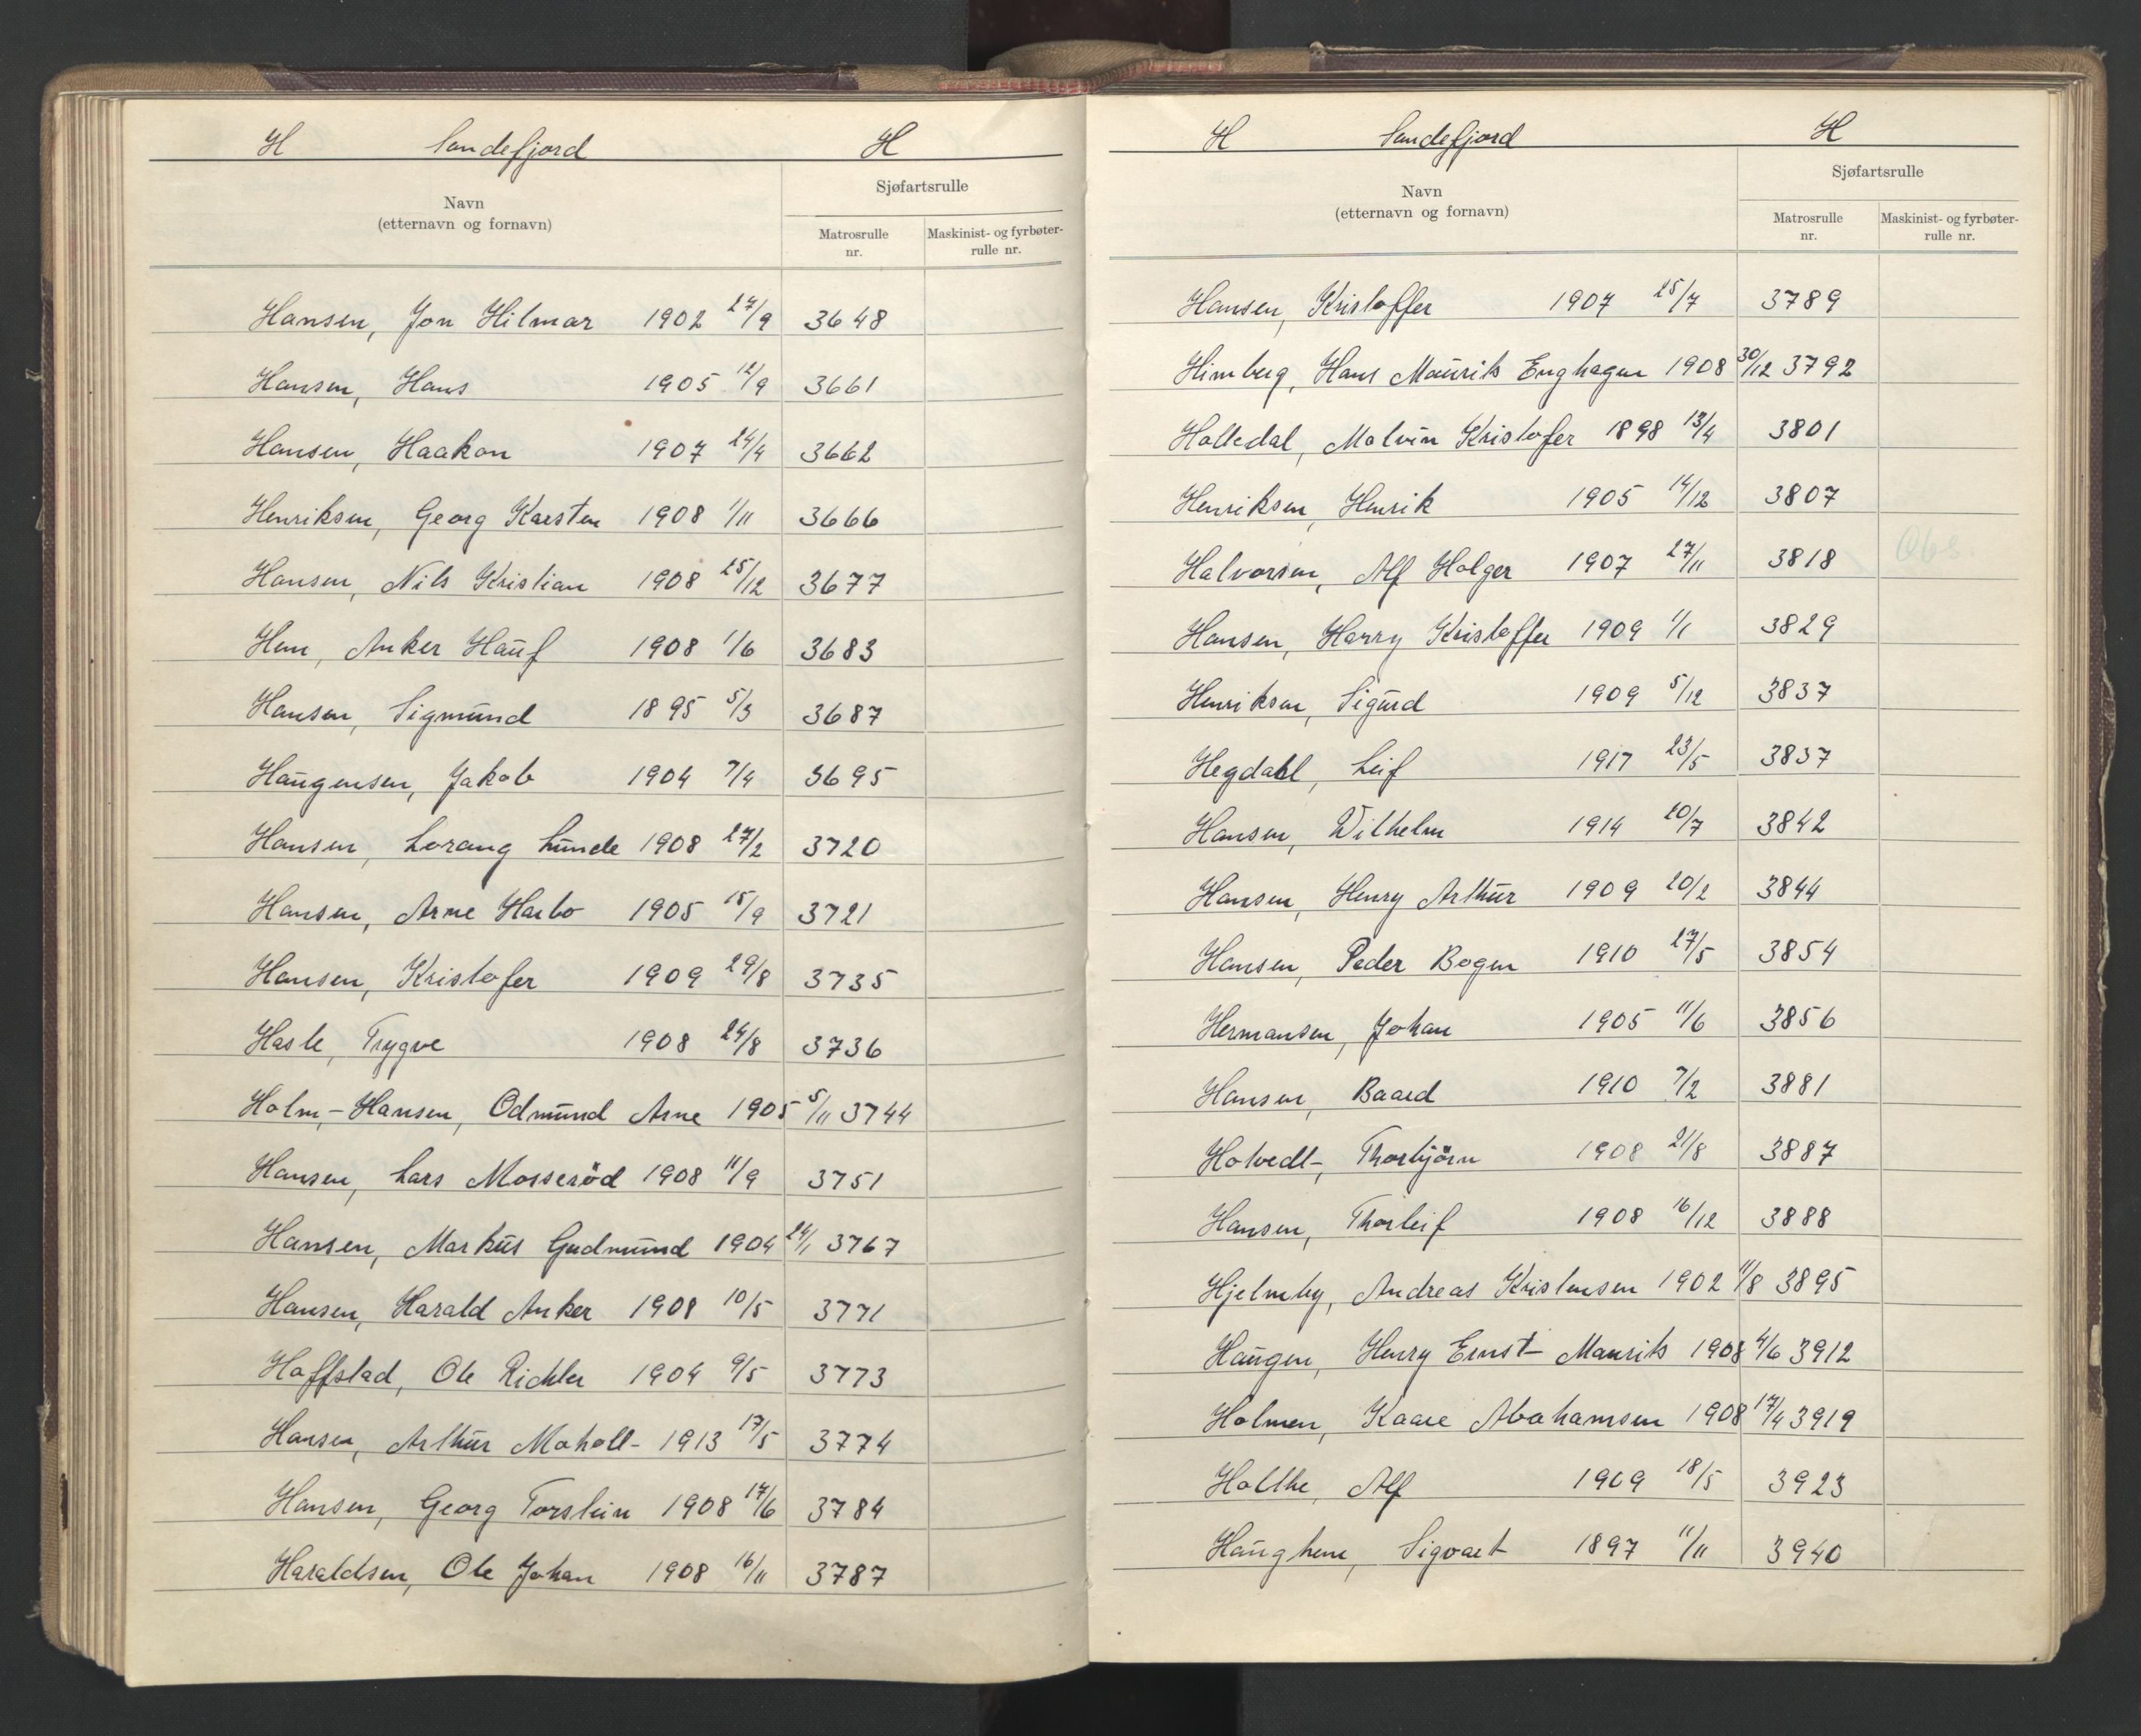 H Sandefjord H
Navn
(etternavn og fornavn)
Sjøfartsrulle
Matrosrulle
nr.
Maskinist- og fyrbøter-
rulle nr.
Hansen, Jon Hilmar 1902 27/9 3648
Hansen, Hans 1905 12/9 3661
Hansen, Haakon 1907 24/4 3662
Henriksen, Georg Karsten 1908 1/11 3666
Hansen, Nils Kristian 1908 25/12 3677
Hem, Anker Hauf 1908 1/6 3683
Hansen, Sigmund 1895 5/3 3687
Haugensen, Jakob 1904 7/4 3695
Hansen, Lorang Lunde 1908 27/2 3720
Hansen, Arne Harbo 1905 15/9 3721
Hansen, Kristofer 1909 29/8 3735
Hasle, Trygve 1908 24/8 3736
Holm,-Hansen, Odmund Arne 1905 5/11 3744
Hansen, Lars Mosserød 1908 11/9 3751
Hansen, Markus Gudmund 1904 24/1 3767
Hansen, Harald Anker 1908 10/5 3771
Hoffstad, Ole Richter 1904 9/5 3773
Hansen, Arthur Moholt 1913 17/5 3774
Hansen, Georg Torstein 1908 17/6 3784
Haraldsen, Ole Johan 1908 16/11 3787
H Sandefjord H
Navn
(etternavn og fornavn)
Sjøfartsrulle
Matrosrulle
nr.
Maskinist- og fyrbøter-
rulle nr.
Hansen, Kristoffer 1907 25/7 3789
Himberg, Hans Maurits Enghagen 1908 30/12 3792
Holtedal, Malvin Kristofer 1898 13/4 3801
Henriksen, Henrik 1905 14/12 3807
Halvorsen, Alf Holger 1907 27/11 3818 Obs
Hansen, Harry Kristoffer 1909 1/1 3829
Henriksen, Sigurd 1909 5/12 3837
Hegdahl, Leif 1917 23/5 3837
Hansen, Wilhelm 1914 20/7 3842
Hansen, Henry Arthur 1909 20/2 3844
Hansen, Peder Bogen 1910 27/5 3854
Hermansen, Johan 1905 11/6 3856
Hansen, Baard 1910 7/2 3881
Hotvedt, Thorbjörn 1908 21/8 3887
Hansen, Thorleif 1908 16/12 3888
Hjelmby, Andreas Kristensen 1902 11/8 3895
Haugen, Henry Ernst Maurits 1908 4/6 3912
Holmen, Kaare Abahamsen 1908 17/4 3919
Holthe, Alf 1909 18/5 3923
Haughem, Sigvart 1897 11/11 3940